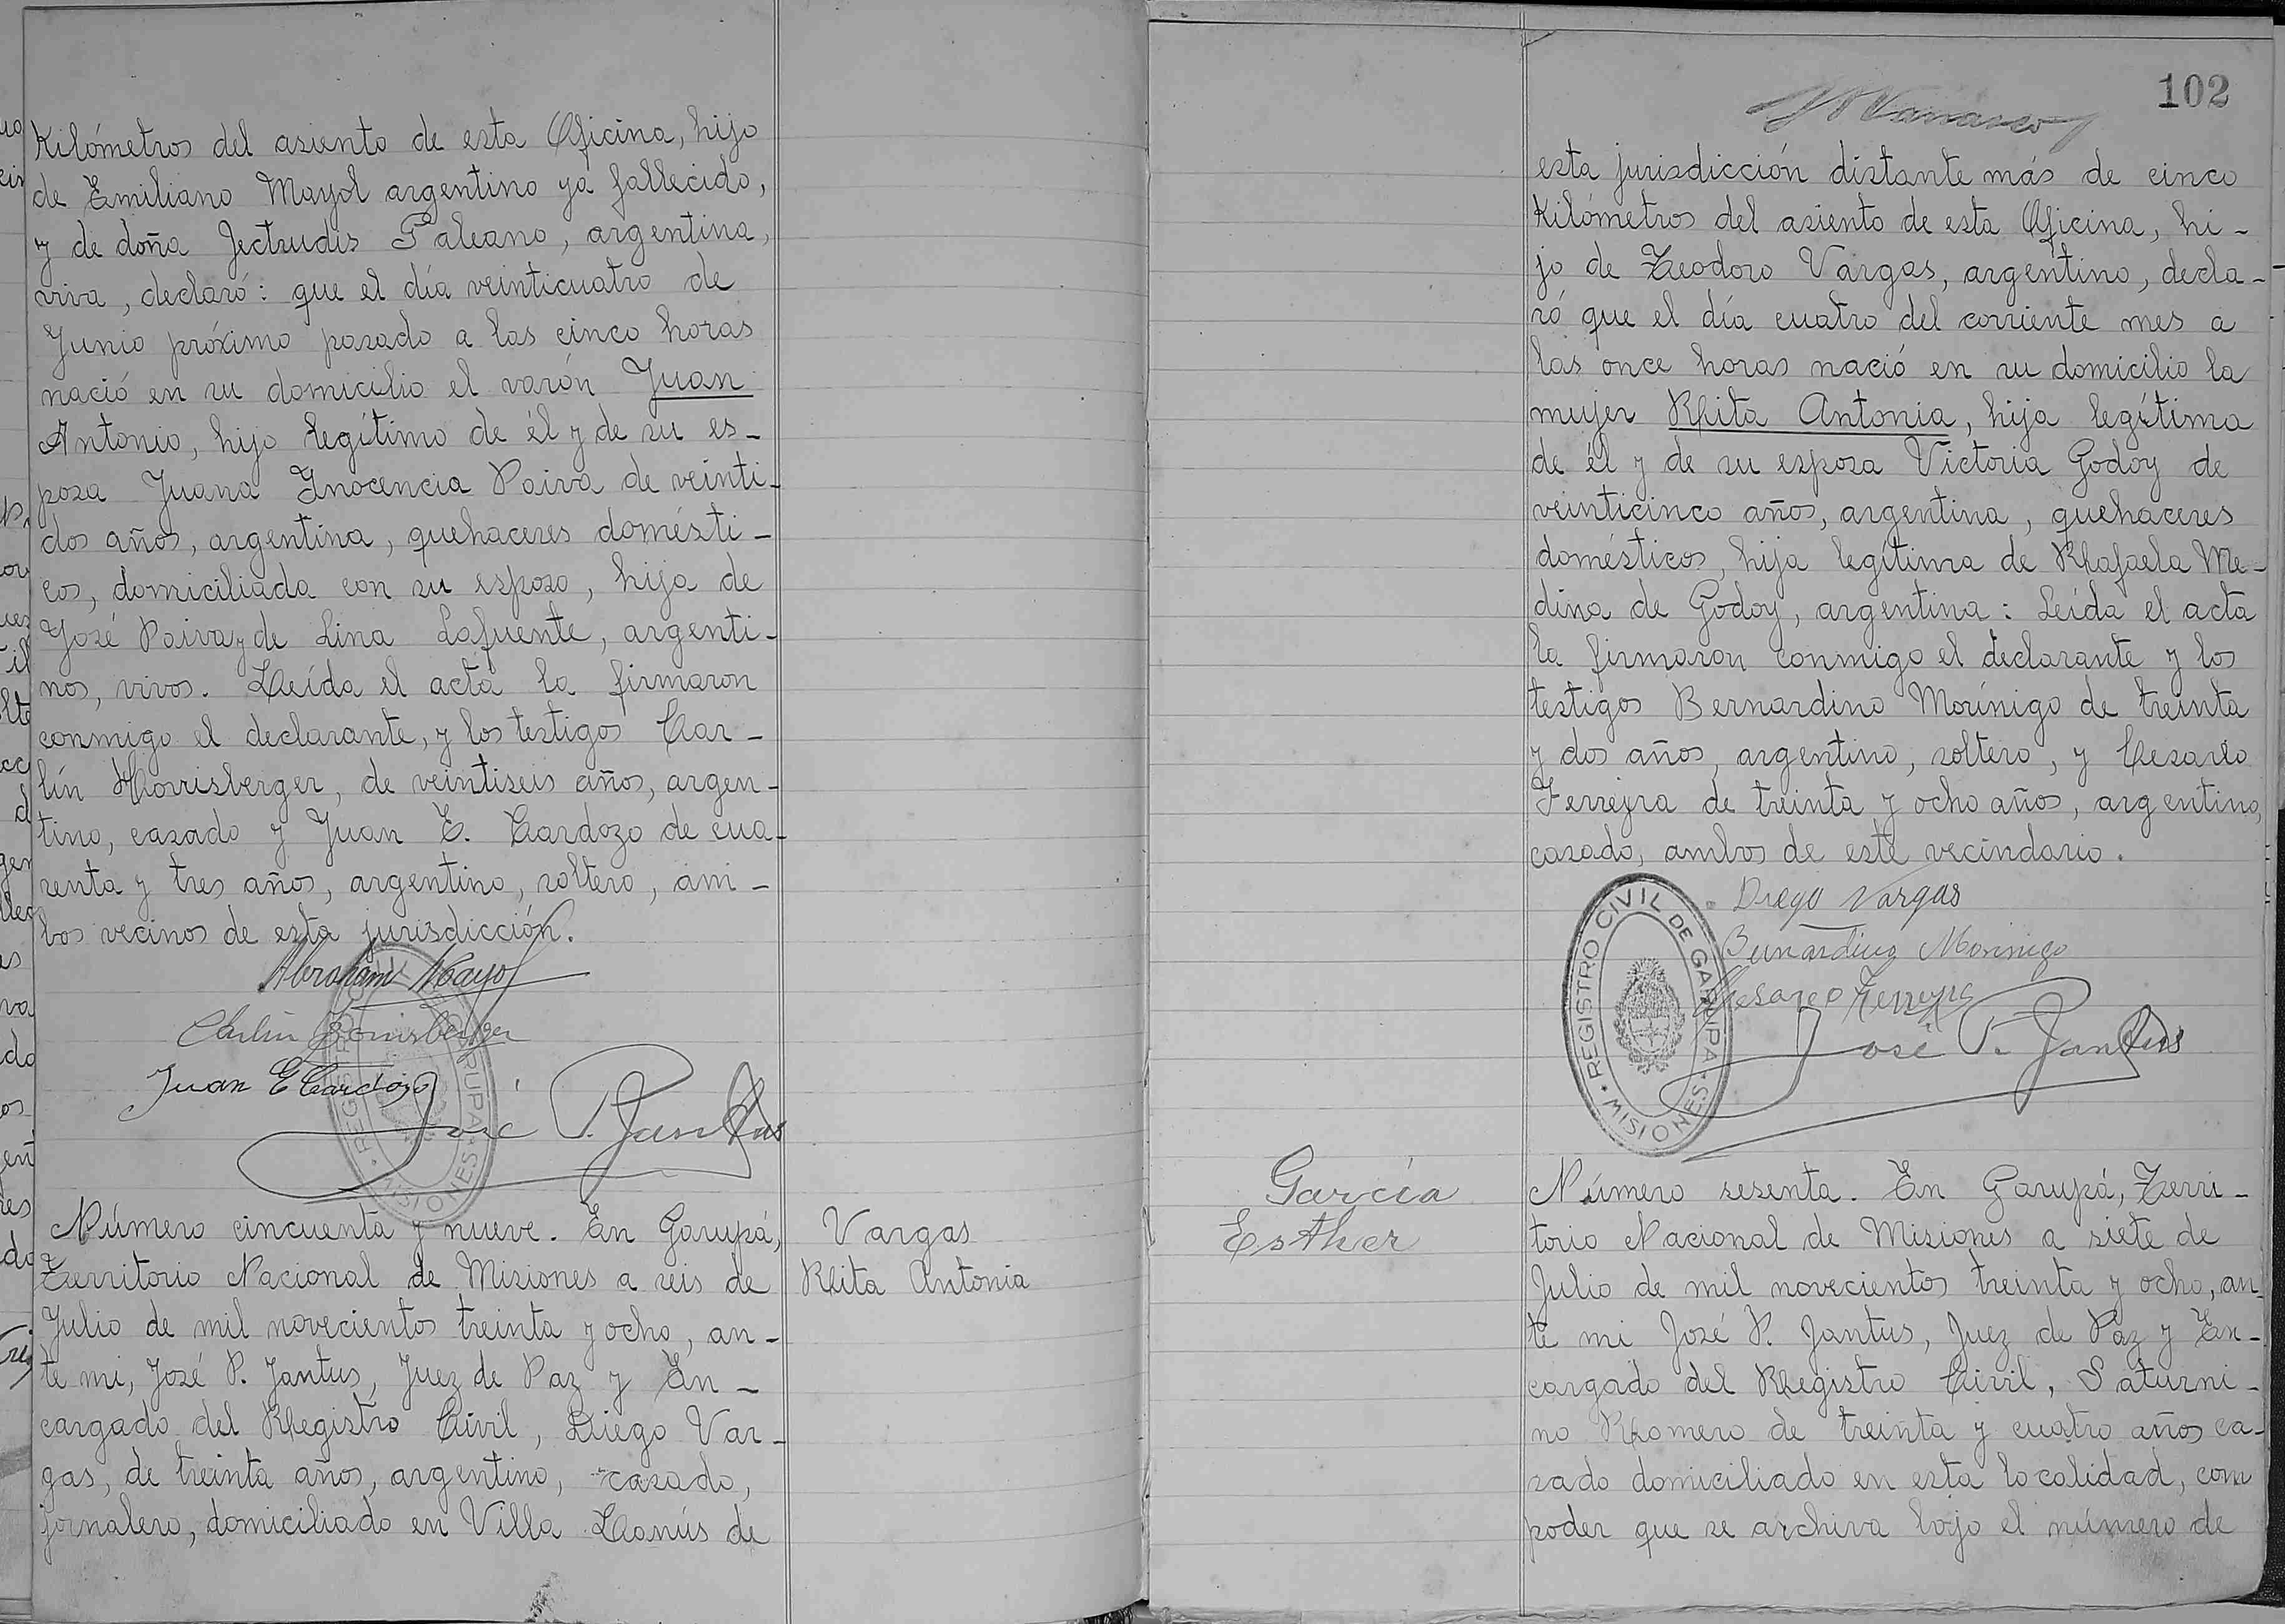 Kilómetros del asiento de esta Oficina, hijo
de Emiliano Mayol argentino ya fallecido,
y de doña Jectrudis Galeano, argentina,
viva, declaró: que el día veinticuatro de
Junio próximo pasado a las cinco horas
nació en su domicilio el varón Juan
Antonio, hijo legítimo de él y de su es-
posa Juana Inocencia Paiva de veinti-
dos años, argentina, quehaceres domésti-
cos, domiciliada con su esposo, hija de
José Paiva y de Lina Lafuente, argenti-
nos, vivos. Leída el acta la firmaron
conmigo el declarante, y los testigos Car-
lín Horrisberger, de veintiseis años, argen-
tino, casado y Juan E. Cardozo de cua-
renta y tres años, argentino, soltero, am-
bos vecinos de esta jurisdicción.
Abraham Mayol
Carlin Horrisberger
Juan E Cardozo
José P. Jantus
Número cincuenta y nueve. En Garupá,
Territorio Nacional de Misiones a seis de
Julio de mil novecientos treinta y ocho, an-
te mi, José P. Jantus, Juez de Paz y En-
cargado del Registro Civil, Diego Var-
gas, de treinta años, argentino, casado,
jornalero, domiciliado en Villa Lanús de
Vargas
Rita Antonia
102
esta jurisdicción distante más de cinco
Kilómetros del asiento de esta Oficina, hi-
jo de Teodoro Vargas, argentino, decla-
ró que el día cuatro del corriente mes a
las once horas nació en su domicilio la
mujer Rita Antonia, hija legítima
de él y de su esposa Victoria Godoy de
veinticinco años, argentina, quehaceres
domésticos, hija legítima de Rafaela Me-
dina de Godoy, argentina: Leída el acta
la firmaron conmigo el declarante y los
testigos Bernardino Morínigo de treinta
y dos años, argentino, soltero, y Cesareo
Ferreyra de treinta y ocho años, argentino,
casado, ambos de este vecindario.
Diego Vargas
Bernardino Morinigo
Cesareo Ferreyra
José P. Jantus
REGISTRO CIVIL DE GARUPA
MISIONES
García
Esther
Número sesenta. En Garupá, Terri-
torio Nacional de Misiones a siete de
Julio de mil novecientos treinta y ocho, an-
te mi José P. Jantus, Juez de Paz y En-
cargado del Registro Civil, Saturni-
no Romero de treinta y cuatro años ca-
sado domiciliado en esta localidad, com
poder que se archiva bajo el número de